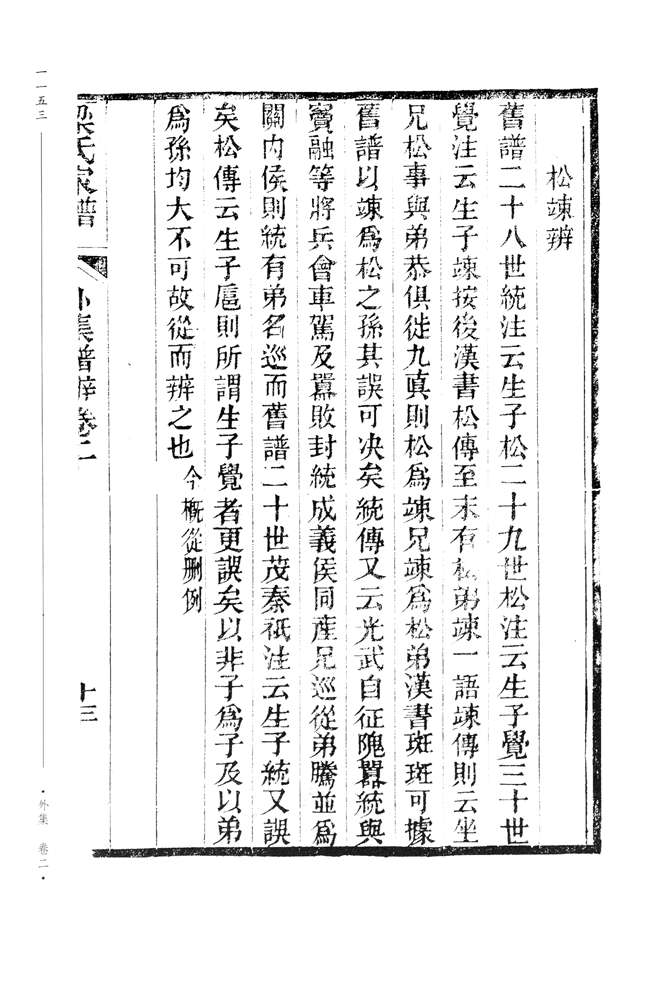 松竦辨
舊譜二十八世統注云生子松二十九世松注云生子覺三十世
覺注云生子竦按後漢書松傳至末有松弟竦一語竦傳則云坐
兄松事與弟恭俱徙九真則松為竦兄竦為松弟漢書斑斑可據
舊譜以竦為松之孫其誤可決矣統傳又云光武自征隗囂統與
竇融等將兵會車駕及囂敗封統成義侯同産兄巡從弟騰並為
關內侯則統有弟名巡而舊譜二十世茂秦祇注云生子統又誤
矣松傳云生子扈則所謂生子覺者更誤矣以非子為子及以弟
為孫均大不可故從而辨之也 今概從刪例
梁氏家譜 外集譜辨卷二 十三
一一五三
·外集 卷二·